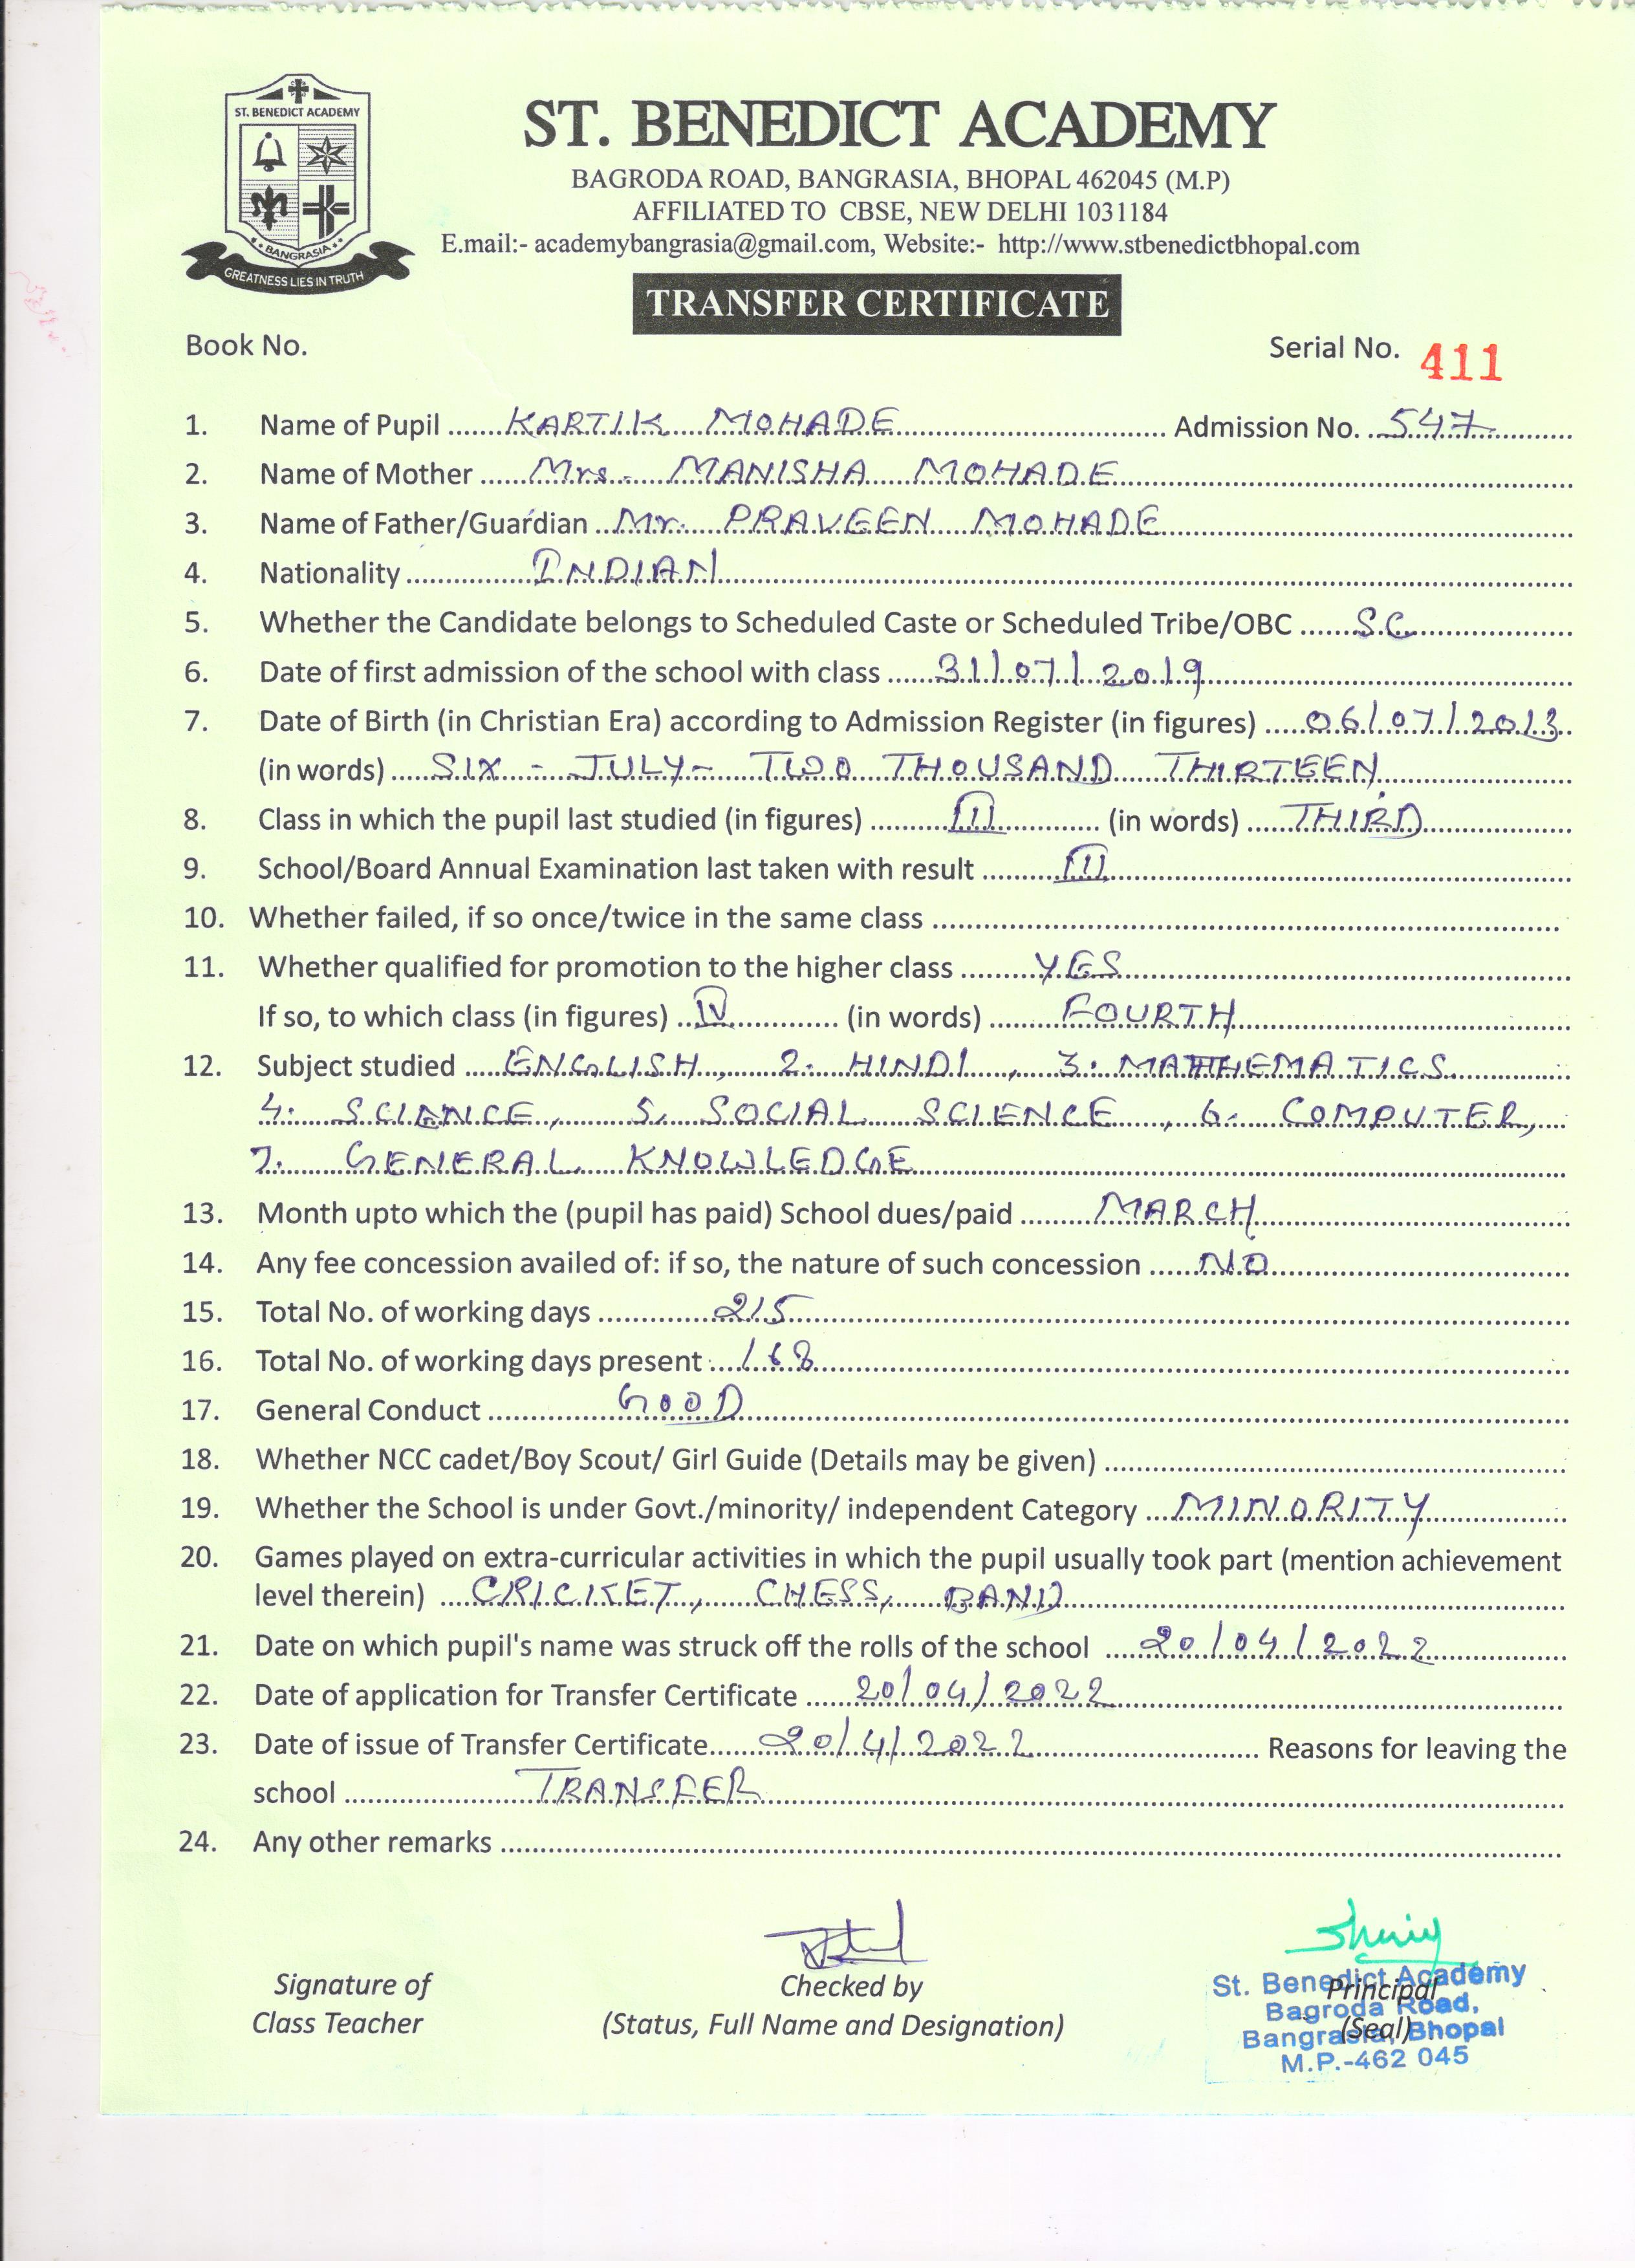 ST. BENEDICT ACADEMY
BANGRASIA
GREATNESS LIES IN TRUTH
ST. BENEDICT ACADEMY
BAGRODA ROAD, BANGRASIA, BHOPAL 462045 (M.P)
AFFILIATED TO CBSE, NEW DELHI 1031184
E.mail:- academybangrasia@gmail.com, Website:- http://www.stbenedictbhopal.com
TRANSFER CERTIFICATE
Book No. Serial No. 411
1. Name of Pupil KARTIK MOHADE Admission No. 547
2. Name of Mother Mrs. MANISHA MOHADE
3. Name of Father/Guardian Mr. PRAVEEN MOHADE
4. Nationality INDIAN
5. Whether the Candidate belongs to Scheduled Caste or Scheduled Tribe/OBC S.C
6. Date of first admission of the school with class 31/07/2019
7. Date of Birth (in Christian Era) according to Admission Register (in figures) 06/07/2013
(in words) SIX - JULY - TWO THOUSAND THIRTEEN
8. Class in which the pupil last studied (in figures) III (in words) THIRD
9. School/Board Annual Examination last taken with result III
10. Whether failed, if so once/twice in the same class
11. Whether qualified for promotion to the higher class YES
If so, to which class (in figures) IV (in words) FOURTH
12. Subject studied ENGLISH, 2. HINDI, 3. MATHEMATICS
4. SCIENCE, 5. SOCIAL SCIENCE, 6. COMPUTER,
7. GENERAL KNOWLEDGE
13. Month upto which the (pupil has paid) School dues/paid MARCH
14. Any fee concession availed of: if so, the nature of such concession NO
15. Total No. of working days 215
16. Total No. of working days present 168
17. General Conduct GOOD
18. Whether NCC cadet/Boy Scout/ Girl Guide (Details may be given)
19. Whether the School is under Govt./minority/ independent Category MINORITY
20. Games played on extra-curricular activities in which the pupil usually took part (mention achievement
level therein) CRICKET, CHESS, BAND
21. Date on which pupil's name was struck off the rolls of the school 20/04/2022
22. Date of application for Transfer Certificate 20/04/2022
23. Date of issue of Transfer Certificate 20/4/2022 Reasons for leaving the
school TRANSFER
24. Any other remarks
Signature of Checked by Principal
Class Teacher (Status, Full Name and Designation) (Seal)
St. Benedict Academy
Bagroda Road,
Bangrasia, Bhopal
M.P.-462 045